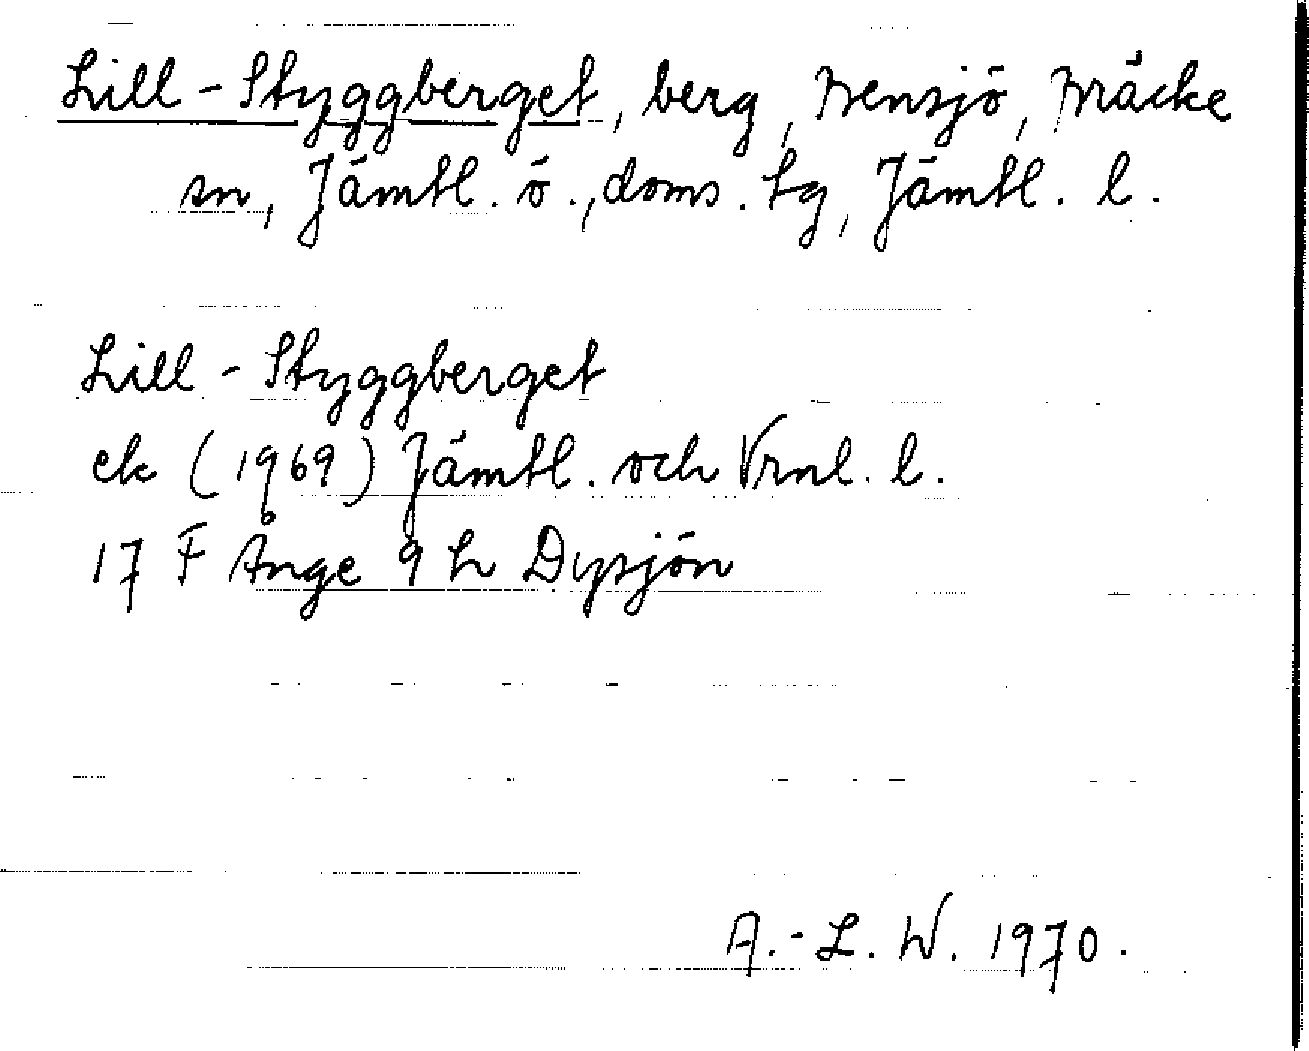 Lill-Styggberget, berg, Bensjö, Bräcke
sn, Jämtl. ö., doms. tg, Jämtl. l.
Lill-Styggberget
ek (1969) Jämtl. och Vrnl. l.
17 F Ånge 9 h Dysjön
A.-L. W. 1970.